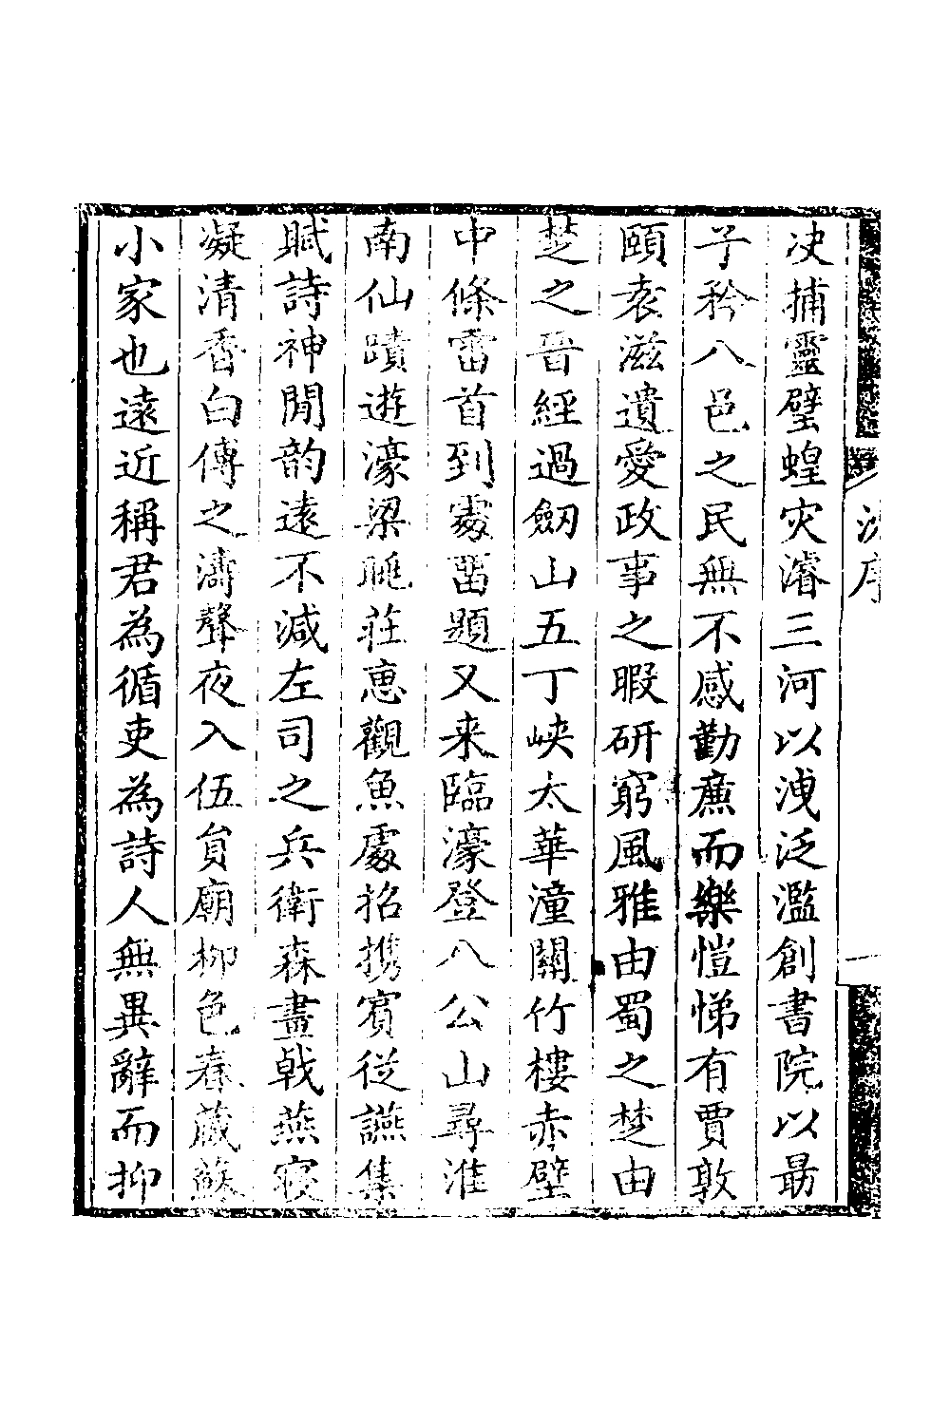 决捕靈璧蝗灾濬三河以洩泛濫創書院以勗
子衿八邑之民無不感勸薦而樂愷悌有賈敦
頤袁滋遺愛政事之暇研窮風雅由蜀之楚由
楚之晉經過劒山五丁峽太華潼關竹樓赤壁
中條雷首到處留題又来臨濠登八公山尋淮
南仙蹟遊濠梁眺莊惠觀魚處招携賓從讌集
賦詩神閒韵遠不減左司之兵衛森畫戟燕寝
凝清香白傅之濤聲夜入伍員廟柳色春蔵蘇
小家也遠近稱君為循吏為詩人無異辭而抑
序
一